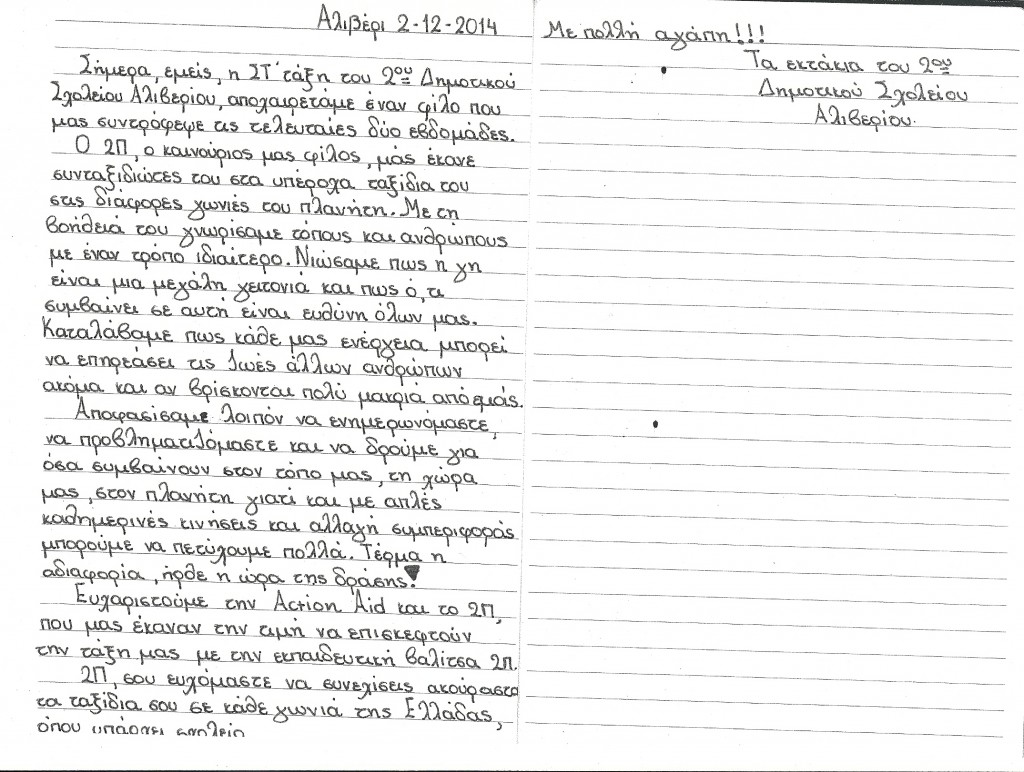 Αλιβέρι 2-12-2014
Σήμερα, εμείς, η ΣΤ΄ τάξη του 2ου Δημοτικού
Σχολείου Αλιβερίου, αποχαιρετάμε έναν φίλο που
μας συντρόφεψε τις τελευταίες δύο εβδομάδες.
Ο 2Π, ο καινούριος μας φίλος, μάς έκανε
συνταξιδιώτες του στα υπέροχα ταξίδια του
στις διάφορες γωνιές του πλανήτη. Με τη
βοήθειά του γνωρίσαμε τόπους και ανθρώπους
με έναν τρόπο ιδιαίτερο. Νιώσαμε πως ή γη
είναι μια μεγάλη γειτονιά και πως ό,τι
συμβαίνει σε αυτή είναι ευθύνη όλων μας.
Καταλάβαμε πως κάθε μας ενέργεια μπορεί
να επηρεάσει τις ζωές άλλων ανθρώπων
ακόμα και αν βρίσκονται πολύ μακριά από εμάς.
Αποφασίσαμε λοιπόν να ενημερωνόμαστε,
να προβληματιζόμαστε και να δρούμε για
όσα συμβαίνουν στον τόπο μας, τη χώρα
μας, στον πλανήτη γιατί και με απλές
καθημερινές κινήσεις και αλλαγή συμπεριφοράς
μπορούμε να πετύχουμε πολλά. Τέρμα η
αδιαφορία, ήρθε η ώρα της δράσης!
Ευχαριστούμε την Action Aid και το 2Π,
που μας έκαναν την τιμή να επισκεφτούν
την τάξη μας με την εκπαιδευτική βαλίτσα 2Π.
2Π, σου ευχόμαστε να συνεχίσεις ακούραστα
τα ταξίδια σου σε κάθε γωνιά της Ελλάδας,
όπου υπάρχει σχολείο
Με πολλή αγάπη!!!
Τα εκτάκια του 2ου
Δημοτικού Σχολείου
Αλιβερίου.